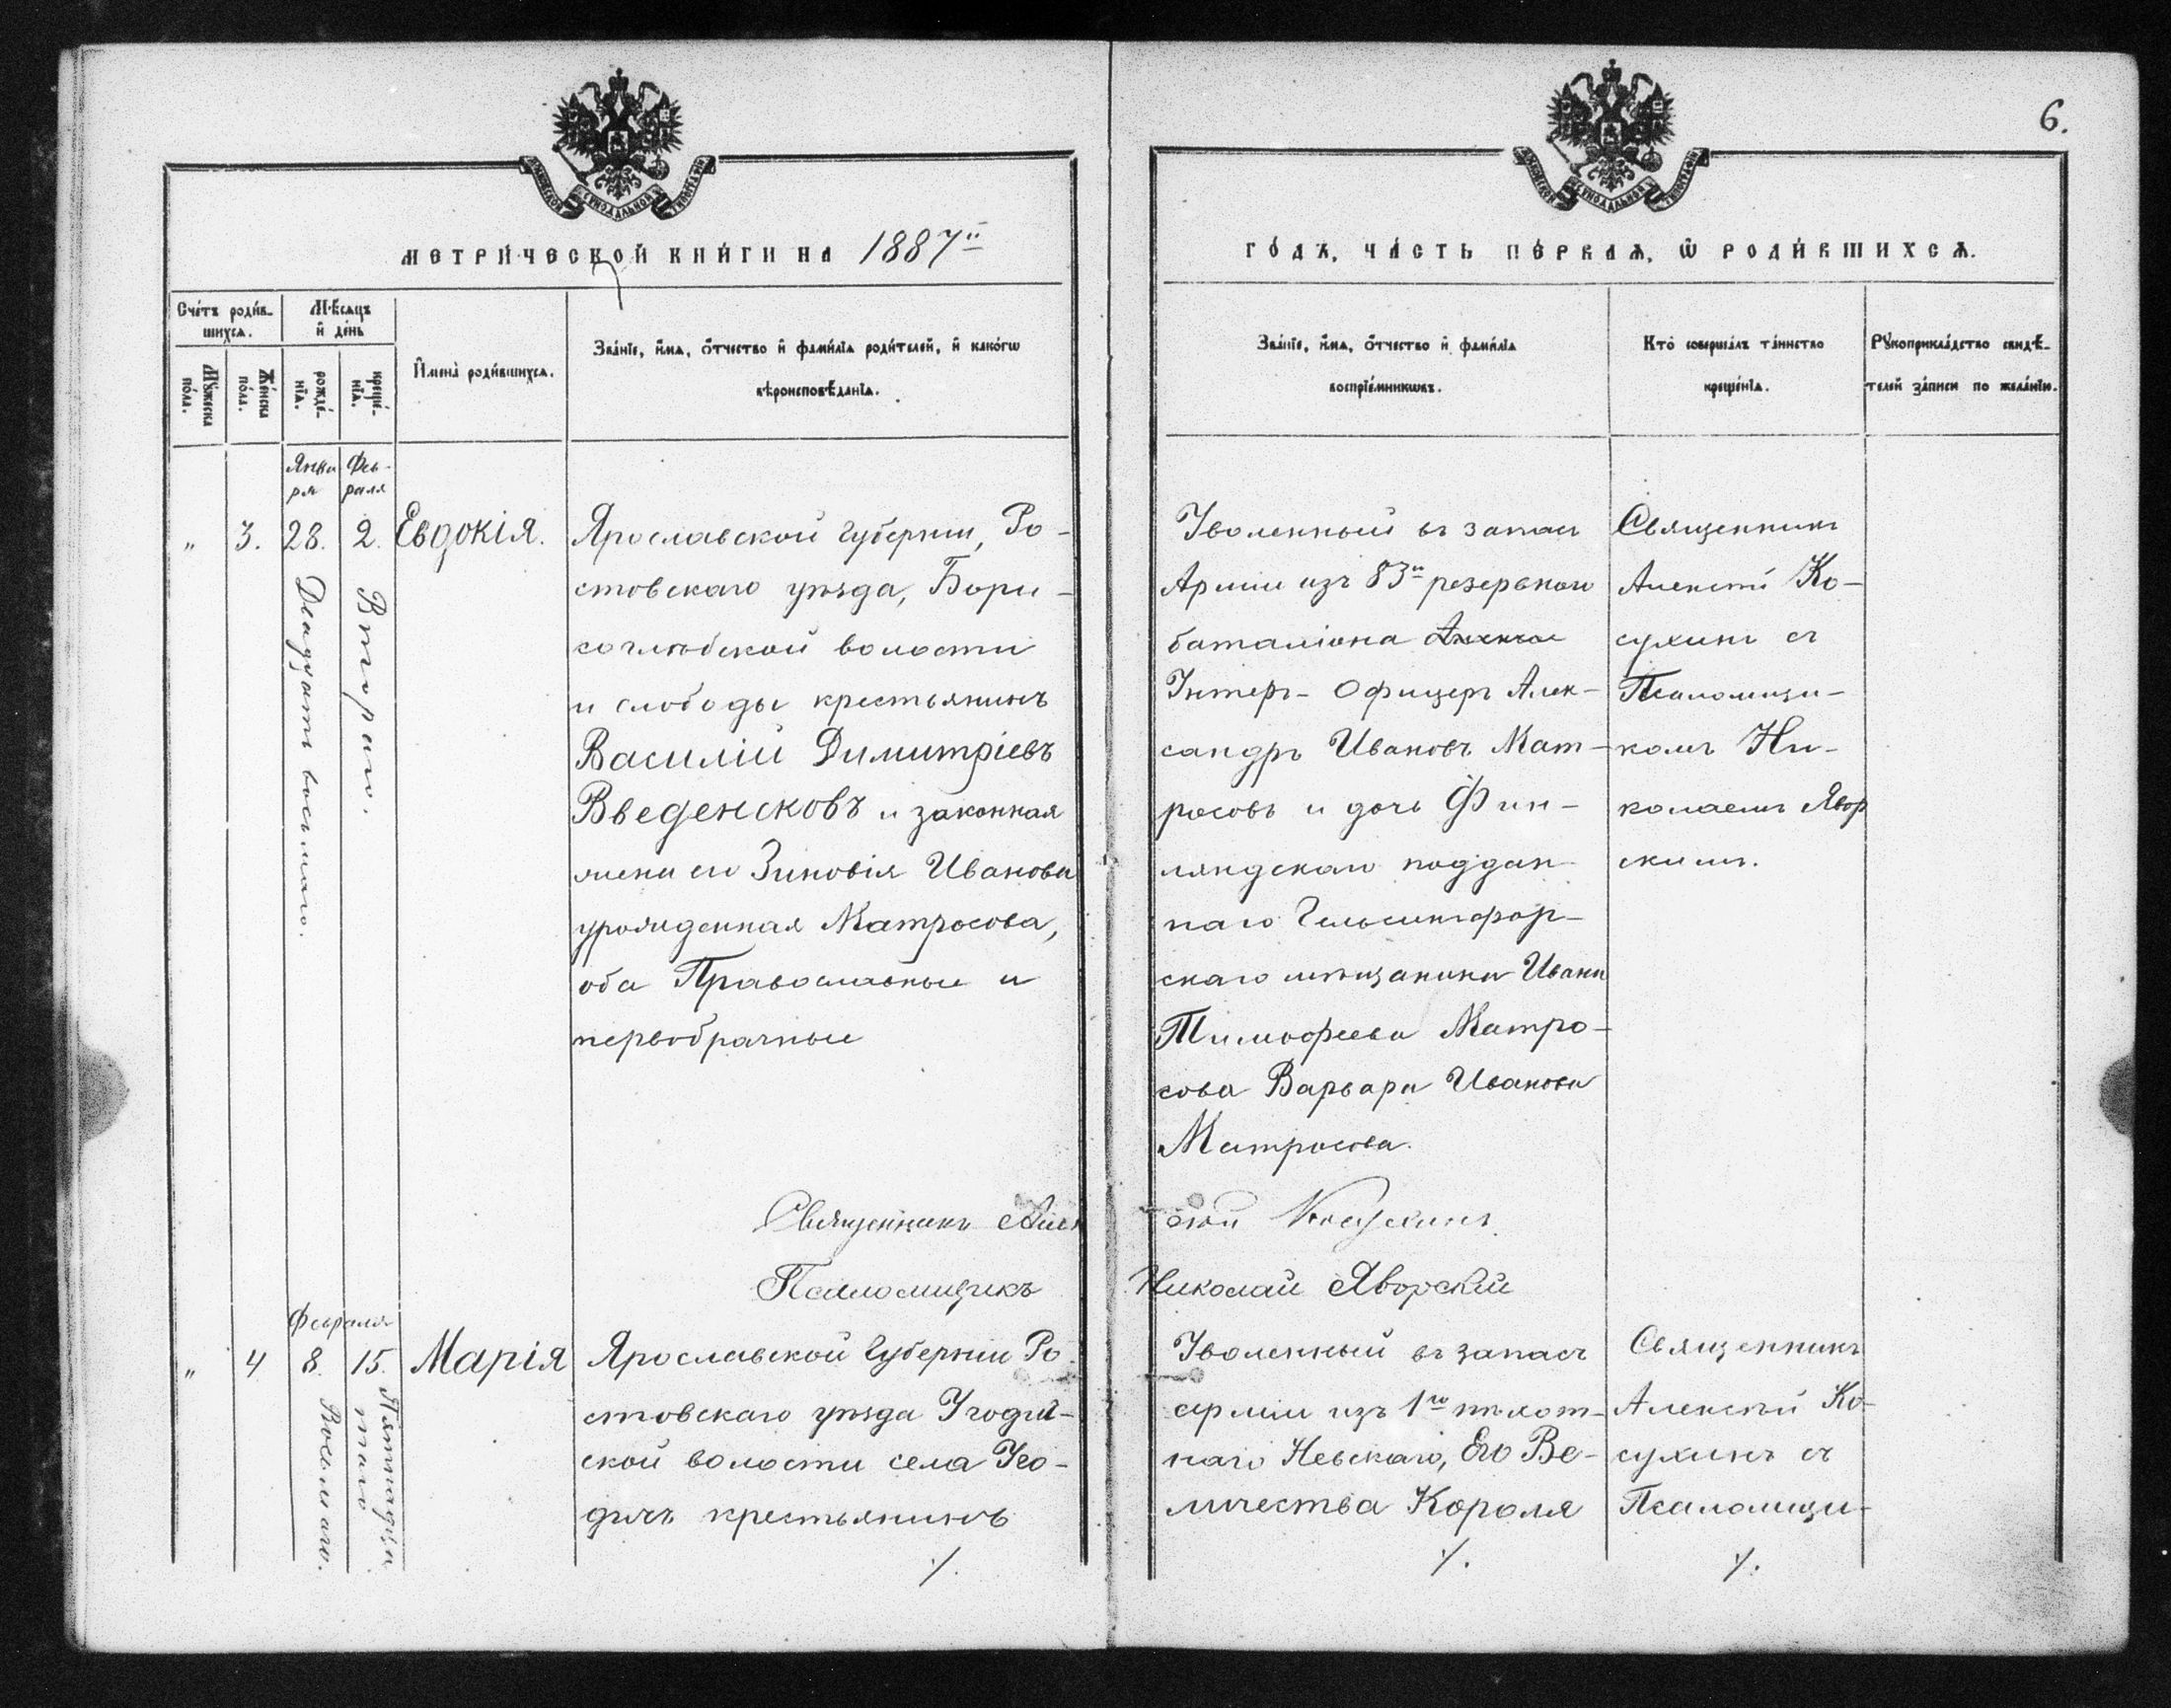 6.
МЕТРИ́ЧЕСКОЙ КНИ́ГИ НА 1887й
ГО́ДЪ, ЧА́СТЬ ПЕ́РВАѦ, Ѽ РОДИ́ВШИХСѦ.
Сче́тъ роди́в-
шихсѧ.
Мꙋ́жеска
по́ла.
Же́нска
по́ла.
Мѣ́сѧцъ
и҆ де́нь
рожде́-
нїѧ.
креще́-
нїѧ.
И҆мена̀ роди́вшихсѧ.
Зва́нїе, и҆́мѧ, ѻ҆́тчество и҆ фами́лїѧ роди́телей, и҆ како́гѡ
вѣроисповѣ́данїѧ.
Зва́нїе, и҆́мѧ, ѻ҆́тчество и҆ фами́лїѧ
воспрїе́мникѡвъ.
Кто̀ соверша́лъ та́инство
креще́нїѧ.
Рꙋкоприкла́дство свидѣ́-
телей за́писи по жела́нїю.
Янва
ря
Фев-
раля
" 3. 28. 2. Евдокія.
Двадцать восьмаго.
Втораго.
Ярославской губерніи, Ро-
стовскаго уѣзда, Бори-
соглѣбской волости
и слободы крестьянинъ
Василій Димитріевъ
Введенсковъ и законная
жена его Зиновія Иванова
урожденная Матросова,
оба Православные и
первобрачные
Уволенный въ запасъ
Арміи изъ 83го резервнаго
баталіона
Унтеръ-Офицеръ Алек-
сандръ Ивановъ Мат-
росовъ и дочь Фин-
ляндскаго поддан-
наго Гельсингфор-
скаго мѣщанина Ивана
Тимофеева Матро-
сова Варвара Иванова
Матросова.
Священникъ
Алексѣй Ко-
сухинъ съ
Псаломщи-
комъ Ни-
колаемъ Явор
скимъ.
Священникъ Алек
сѣй Косухинъ.
Псаломщикъ
Николай Яворскій
Февраля
" 4 8. 15. Марія
Восьмаго.
Пятнадца
таго
Ярославской Губерніи Ро
стовскаго уѣзда Угодич-
ской волости села Уго-
дичъ крестьянинъ
./.
Уволенный въ запасъ
арміи изъ 1го пѣхот-
наго Невскаго, Его Ве-
личества Короля
./.
Священникъ
Алексѣй Ко-
сухинъ съ
Псаломщи-
./.